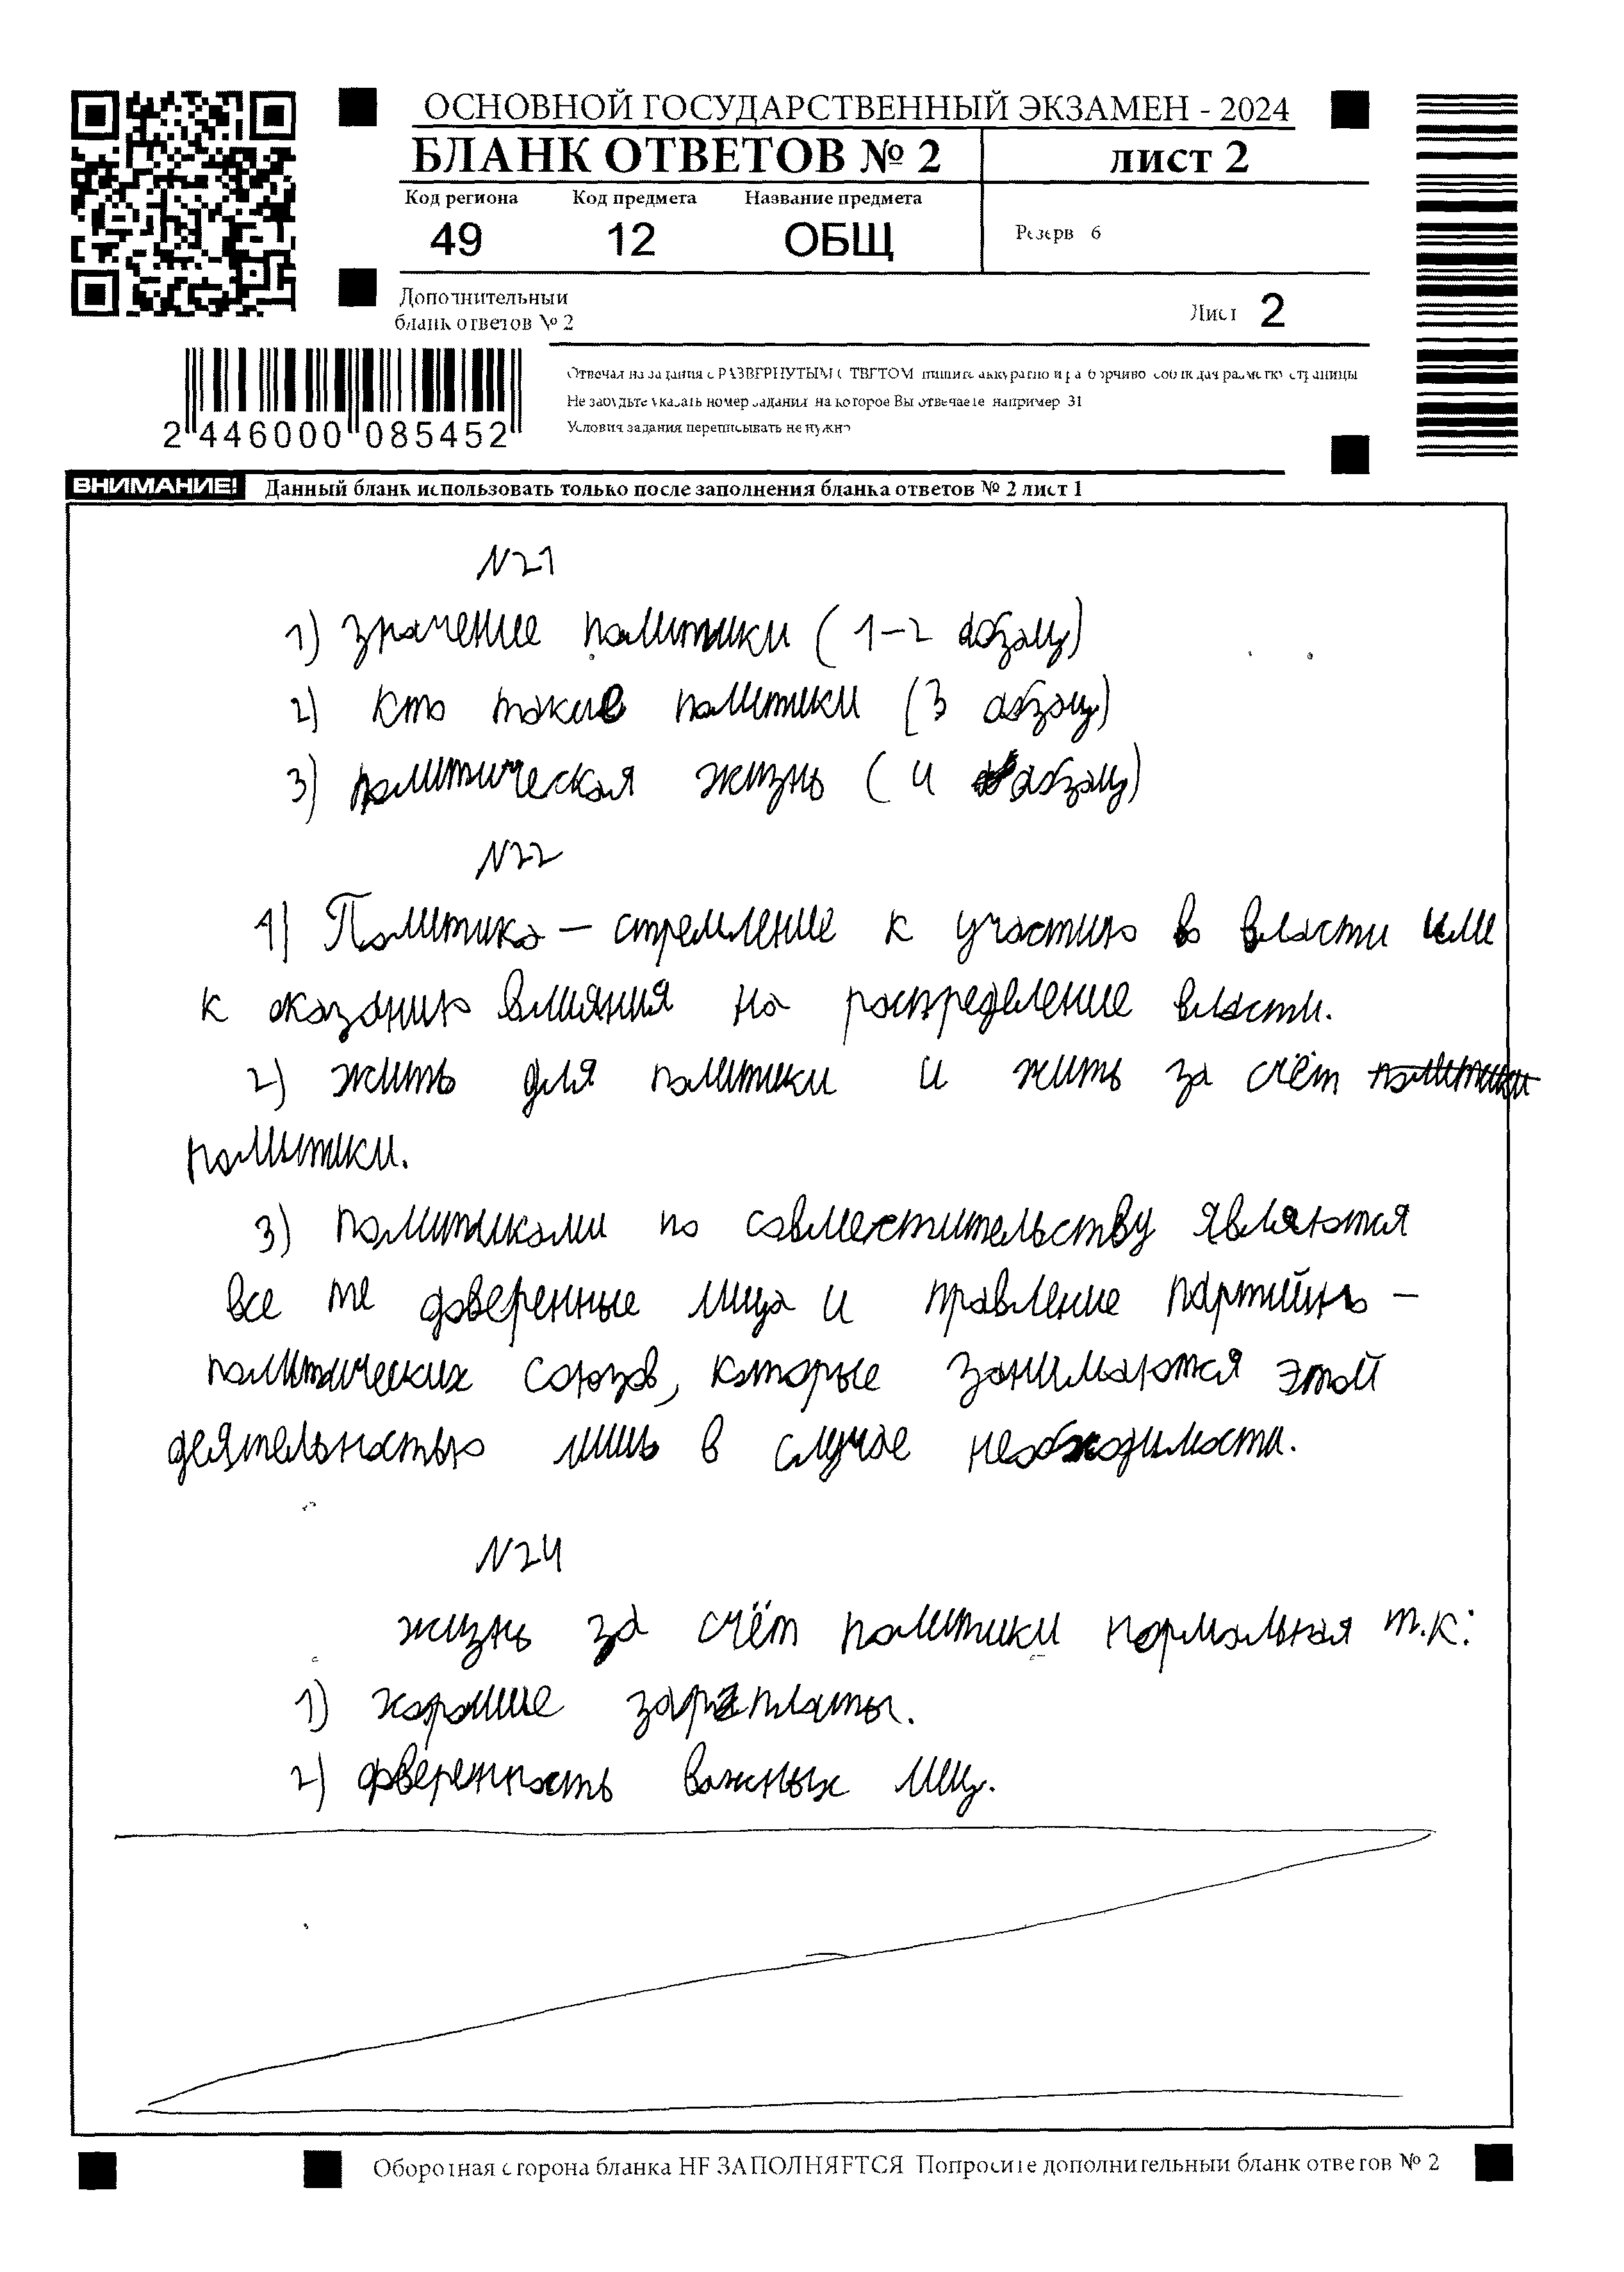 ОСНОВНОЙ ГОСУДАРСТВЕННЫЙ ЭКЗАМЕН - 2024
БЛАНК ОТВЕТОВ № 2
лист 2
Код региона Код предмета Название предмета
49 12 ОБЩ
Резерв 6
Дополнительный
бланк ответов № 2
Лист 2
2 446000 085452
Отвечая на задания с РАЗВЕРНУТЫМ ОТВЕТОМ пишите аккуратно и разборчиво соблюдая разметку страницы
Не забудьте указать номер задания на которое Вы отвечаете например 31
Условия задания переписывать не нужно
ВНИМАНИЕ! Данный бланк использовать только после заполнения бланка ответов № 2 лист 1
N21
1) значение политики (1-2 абзац)
2) кто такие политики (3 абзац)
3) политическая жизнь (4 абзац)
N22
1) Политика – стремление к участию в власти или
к оказанию влияния на распределение власти.
2) жить для политики и жить за счёт политики
политики.
3) политиками по совместительству являются
все те доверенные лица и правление партийно –
политических союзов, которые занимаются этой
деятельностью лишь в случае необходимости.
N24
жизнь за счёт политики нормальная т.к:
1) хорошие зарплаты.
2) доверенность важных лиц.
Оборотная сторона бланка НЕ ЗАПОЛНЯЕТСЯ Попросите дополнительный бланк ответов № 2